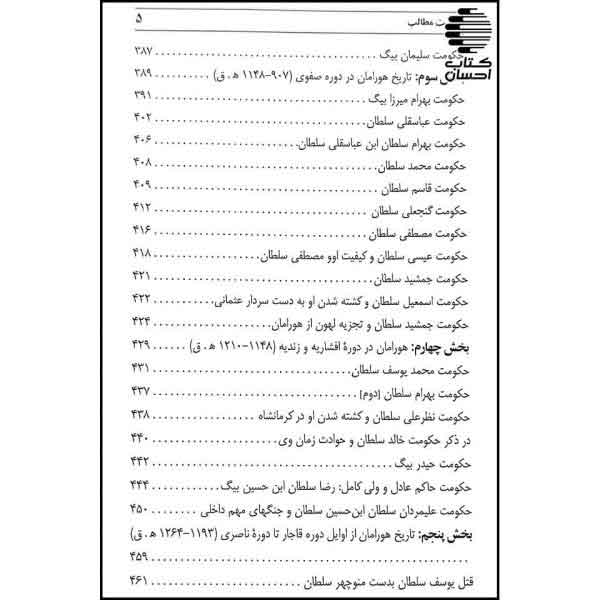 ت مطالب ۵
کتاب احسان
حکومت سلیمان بیگ ۳۸۷
ش سوم: تاریخ هورامان در دوره صفوی (۹۰۷-۱۱۴۸ ه . ق) ۳۸۹
حکومت بهرام میرزا بیگ ۳۹۱
حکومت عباسقلی سلطان ۴۰۲
حکومت بهرام سلطان ابن عباسقلی سلطان ۴۰۶
حکومت محمد سلطان ۴۰۸
حکومت قاسم سلطان ۴۰۹
حکومت گنجعلی سلطان ۴۱۲
حکومت مصطفی سلطان ۴۱۶
حکومت عیسی سلطان و کیفیت اوو مصطفی سلطان ۴۱۸
حکومت جمشید سلطان ۴۲۱
حکومت اسمعیل سلطان و کشته شدن او به دست سردار عثمانی ۴۲۲
حکومت جمشید سلطان و تجزیه لهون از هورامان ۴۲۴
بخش چهارم: هورامان در دورهٔ افشاریه و زندیه (۱۱۴۸-۱۲۱۰ ه . ق) ۴۲۹
حکومت محمد یوسف سلطان ۴۳۱
حکومت بهرام سلطان [دوم] ۴۳۷
حکومت نظرعلی سلطان و کشته شدن او در کرمانشاه ۴۳۸
در ذکر حکومت خالد سلطان و حوادث زمان وی ۴۴۰
حکومت حیدر بیگ ۴۴۲
حکومت حاکم عادل و ولی کامل: رضا سلطان ابن حسین بیگ ۴۴۴
حکومت علیمردان سلطان ابن‌حسین سلطان و جنگهای مهم داخلی ۴۵۰
بخش پنجم: تاریخ هورامان از اوایل دوره قاجار تا دورهٔ ناصری (۱۱۹۳-۱۲۶۴ ه . ق)
۴۵۹
قتل یوسف سلطان بدست منوچهر سلطان ۴۶۱